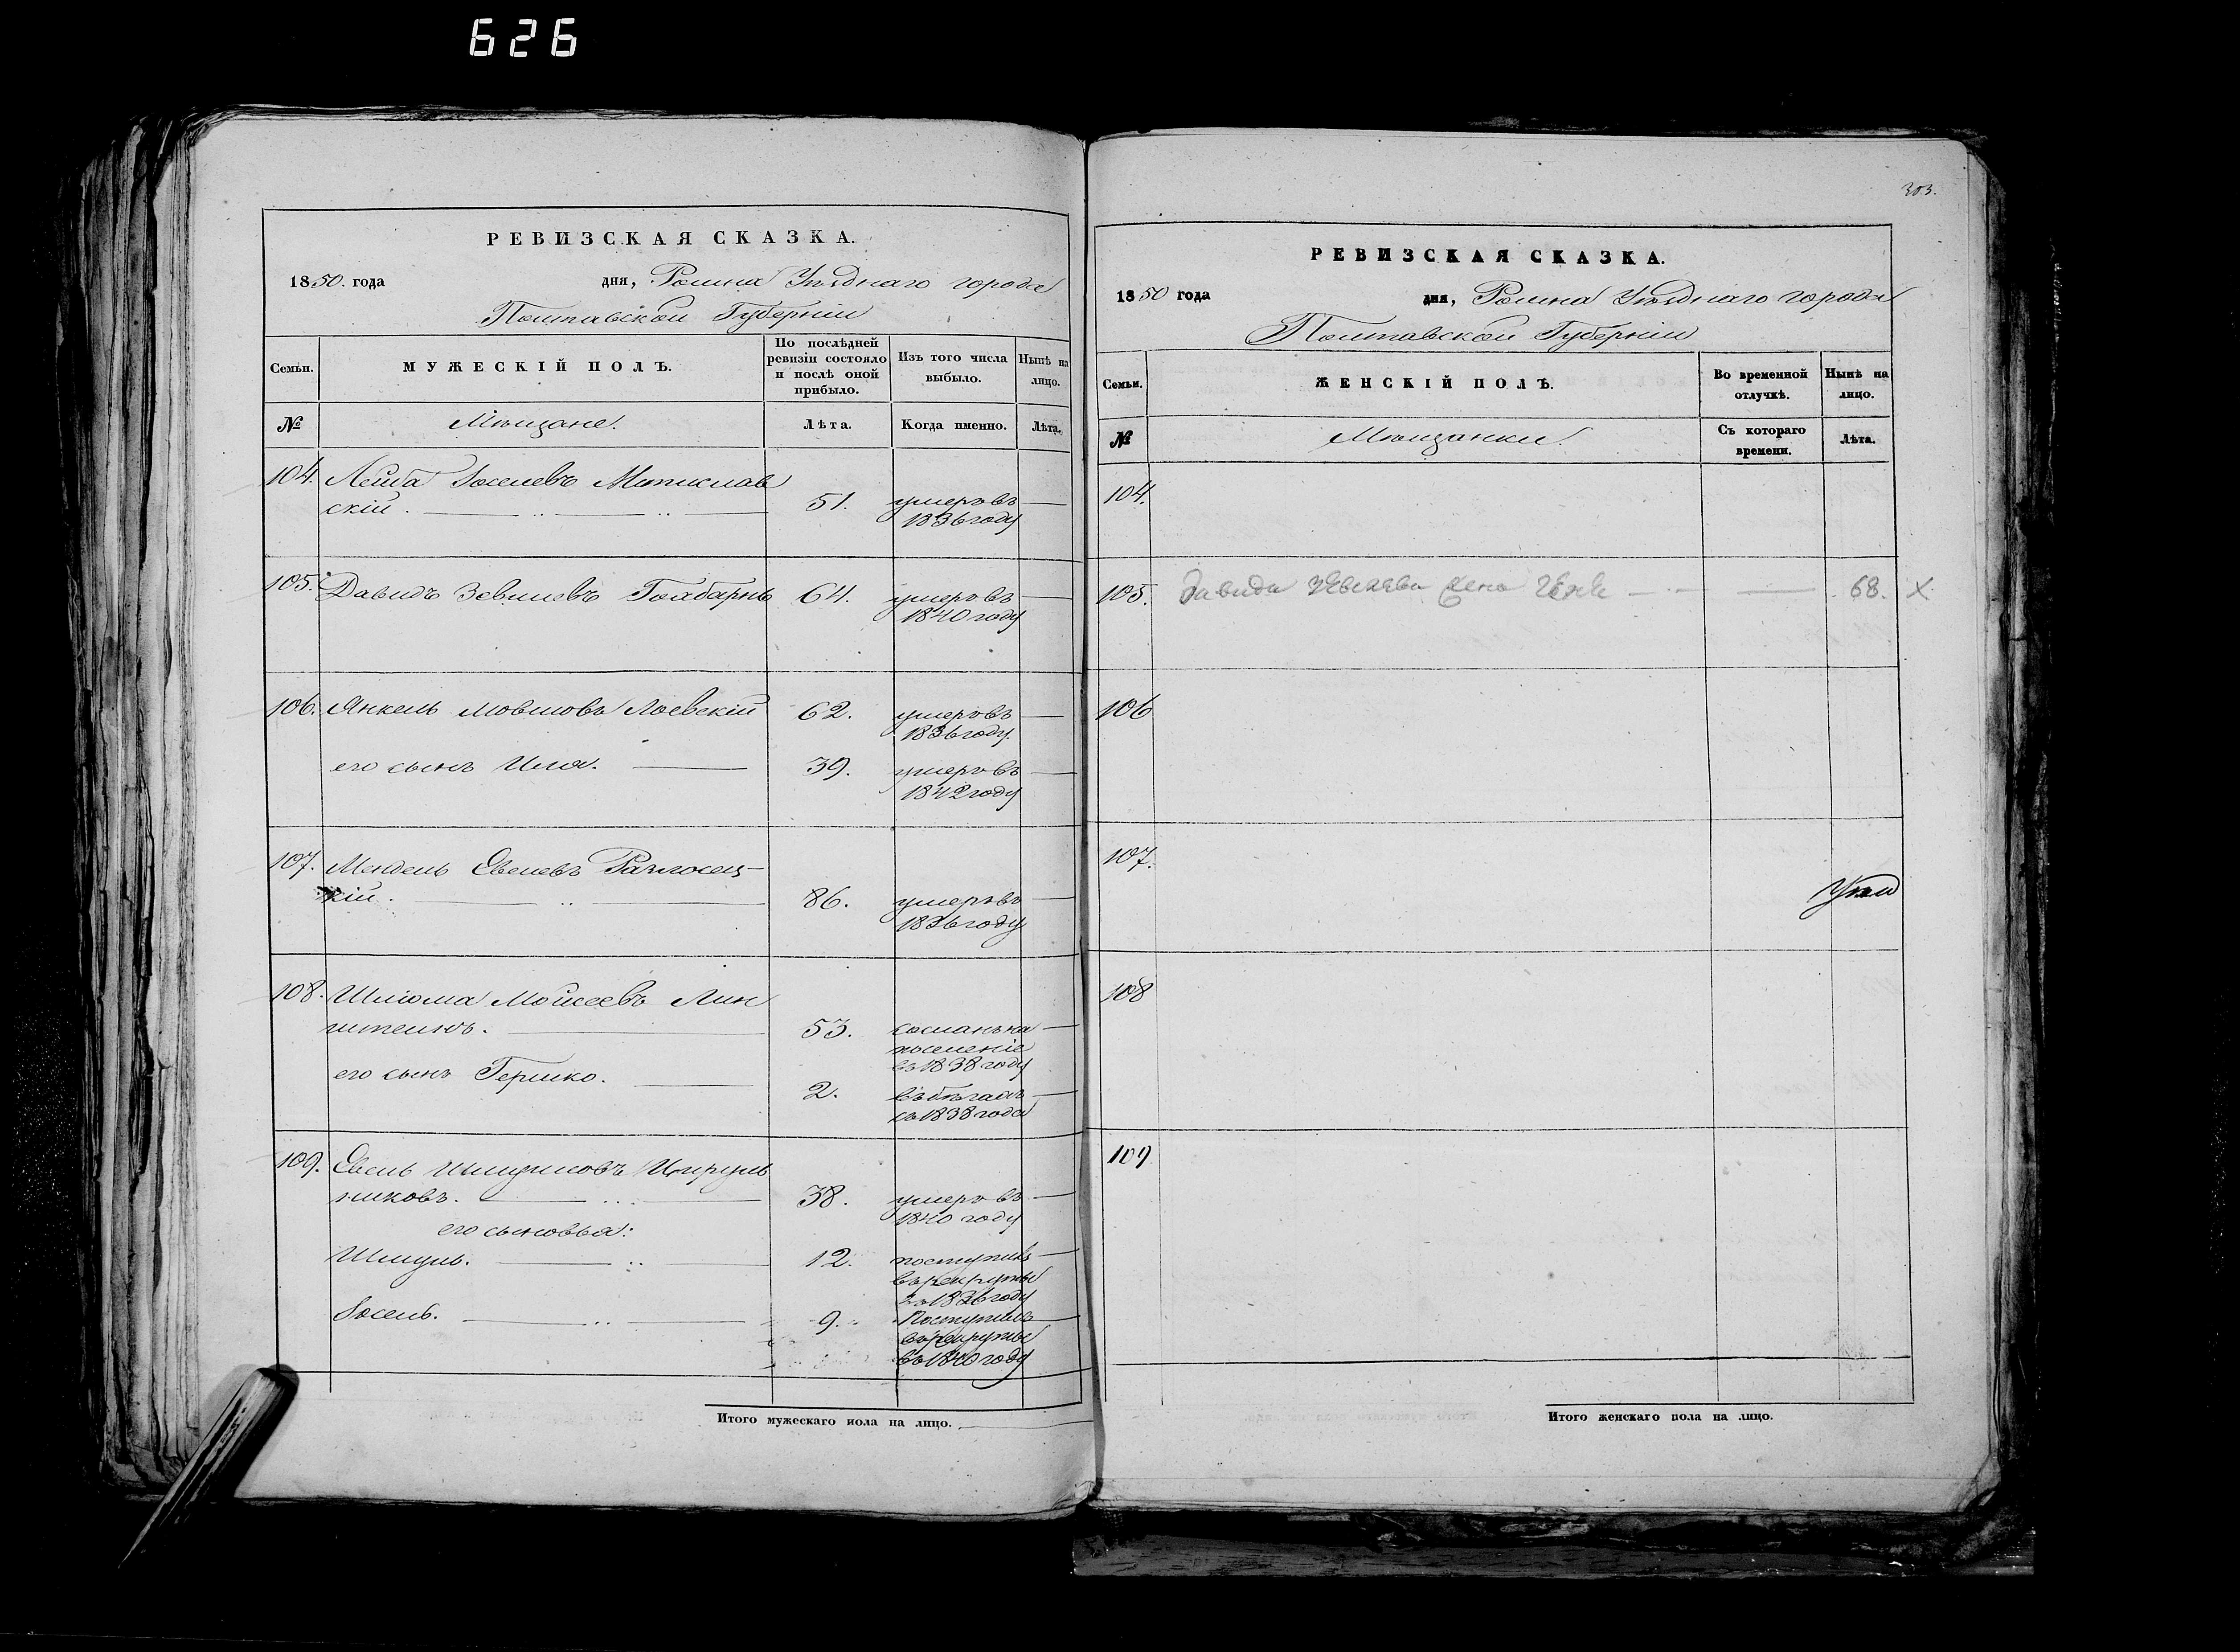 626
РЕВИЗСКАЯ СКАЗКА.
1850. года дня, Ромна Уѣзднаго города
Полтавской Губерніи
Семьи. МУЖЕСКІЙ ПОЛЪ. По послѣдней ревизіи состояло и послѣ оной прибыло. Изъ того числа выбыло. Нынѣ на лицо.
№ Мѣщане. Лѣта. Когда именно. Лѣта.
104. Лейба Іоселевъ Мстислав
скій. 51. умеръ въ
1836 году
105. Давидъ Зевелевъ 64. умеръ въ
1840 году
106. Янкель Мовшовъ Лоевскій 62. умеръ въ
1836 году.
его сынъ 39. умеръ въ
1842 году
107. Мендель
кій. 86. умеръ въ
1836 году
108. Шліома Мойсеевъ
53. сосланъ на
поселеніе
въ 1838 году
его сынъ Гершко. 2. въ бѣгахъ
съ 1838 года
109. Евель Шмуйловъ Цируль
никовъ. 38. умеръ въ
1840 году
его сыновья:
Шмуль. 12. поступилъ
въ рекруты
въ 1836 году
Іосель. 9. Поступилъ
въ рекруты
въ 1840 году
Итого мужескаго пола на лицо.
303.
РЕВИЗСКАЯ СКАЗКА.
1850 года дня, Ромна Уѣзднаго города
Полтавской Губерніи
Семьи. ЖЕНСКІЙ ПОЛЪ. Во временной отлучкѣ. Нынѣ на лицо.
№ Мѣщанки. Съ котораго времени. Лѣта.
104.
105. Давида жена 68. X
106
107.
108
109
Итого женскаго пола на лицо.